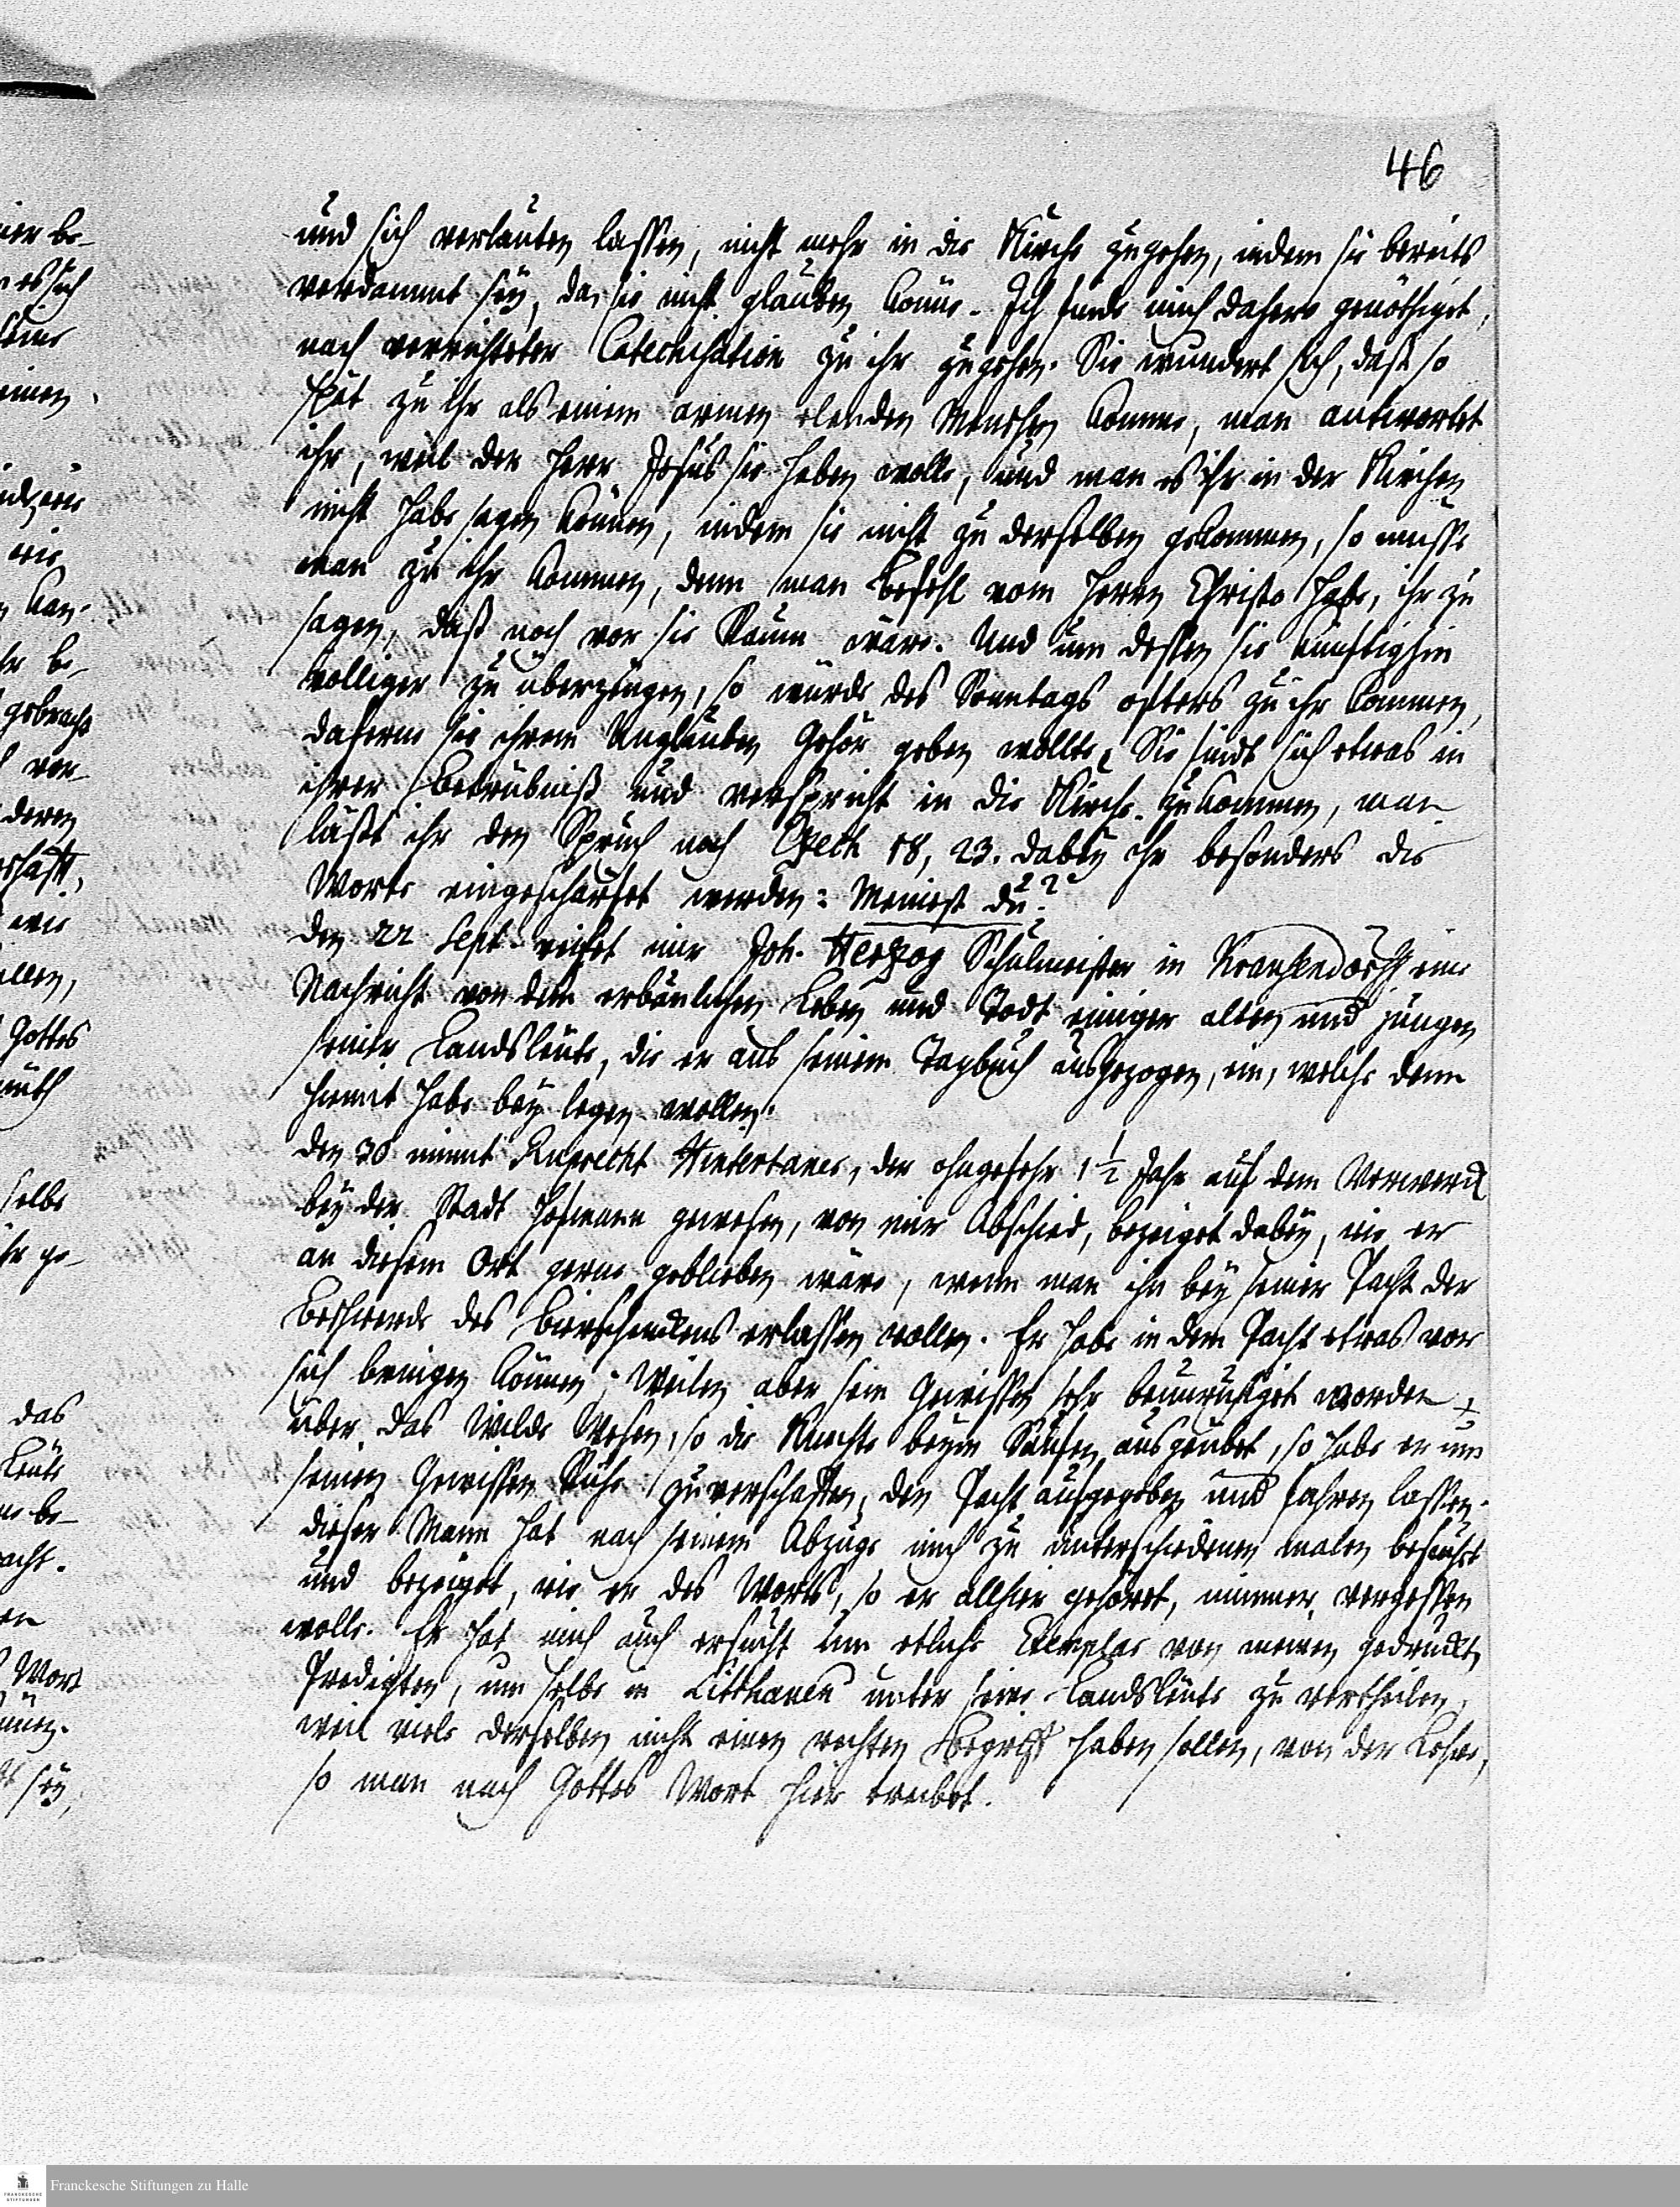 46
und sich verlauten lassen, nicht mehr in die Kirche zugehen, indem sie bereits
verdammt sey, da sie nicht glauben könne. Ich finde mich dahero genöthiget,
nach verrichteter Catechisation zu ihr zugehen. Sie wundert sich, daß so
spät zu ihr als einem armen elenden Menschen komme, man antwortet
ihr, weil der Herr Jesus sie haben wolle, und man es ihr in der Kirchen
nicht habe sagen können, indem sie nicht zu derselben gekommen, so müsse
man zu ihr kommen, denn man Befehl vom Herrn Christo habe, ihr zu
sagen, daß noch vor sie Raum wäre. Und um dessen sie künftighin
völliger zu überzeugen, so würde des Sonntags öfters zu ihr kommen,
daferne sie ihrem Unglauben Gehör geben wollte. Sie findt sich etwas in
ihrer Betrübniß und verspricht in die Kirche zukommen, man
läßt ihr den Spruch nach Ezech 18, 23. dabey ihr besonders die
Worte eingeschärfet werden: Meinest du?
den 22 Sept. reichet mir Joh. Herzog Schulmeister in eine
Nachricht von dem erbaulichen Leben und Todt einiger alten und jungen
seiner Landsleute, die er aus seinem Tagbuch ausgezogen, ein, welche denn
hiemit habe bey legen wollen.
den 30 nimmt Ruprecht, der ohngefehr 1 1/2 Jahr auf dem Vorwerck
bey der Stadt Hofmann gewesen, von mir Abschied, bezeiget dabey, wie er
an diesem Ort gerne geblieben wäre, wenn man ihn bey seiner Pacht der
Beschwerde des Bierschenckens erlassen wollen. Er habe in dem Pacht etwas vor
sich bringen können; Weilen aber sein Gewissen sehr beunruhiget worden
über das Wilde Wesen, so die Knechte beym Saufen ausgeübet, so habe er um
seinen Gewissen Ruhe zuverschaffen, den Pacht aufgegeben und fahren lassen.
dieser Mann hat nach seinem Abzuge mich zu unterschiedenen malen besucht
und bezeiget, wie er des Worts, so er allhier gehöret, nimmer vergessen
wolle. Er hat mich auch ersucht um etliche Exemplar von meinen gedruckten
Predigten, um selbe in Litthauen unter seine Landsleute zu vertheilen,
weil viele derselben nicht einen rechten Begriff haben sollen, von der Lehre,
so man nach Gottes Wort hier treibet.
Franckesche Stiftungen zu Halle